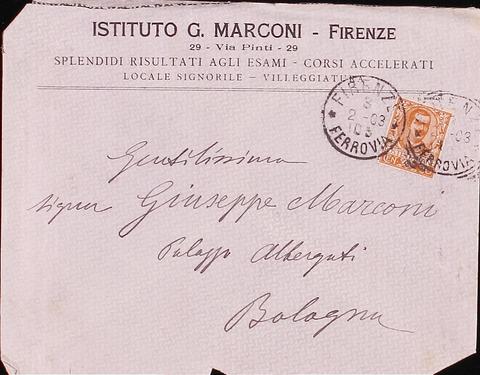 ISTITUTO G. MARCONI - FIRENZE
29 - Via Pinti - 29
SPLENDIDI RISULTATI AGLI ESAMI - CORSI ACCELERATI
LOCALE SIGNORILE - VILLEGGIATUR
FIRENZE
8
2 - 03
10 S
* FERROVIA *
EN
-03
FERROVIA
Gentilissimo
Signor Giuseppe Marconi
Palazzo Albergati
Bologna